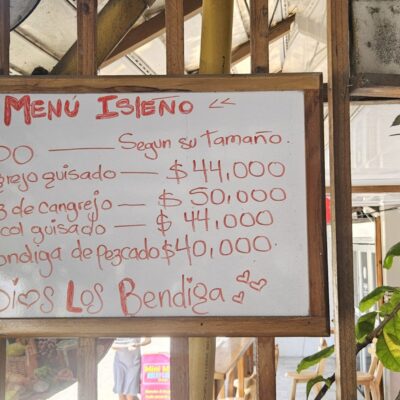 MENÚ ISLEÑO <<
DO — Segun su tamaño.
grejo guisado — $ 44,000
3 de cangrejo — $ 50,000
col guisado — $ 44,000
ondiga de pezcado $40,000.
Dios Los Bendiga
Mini M